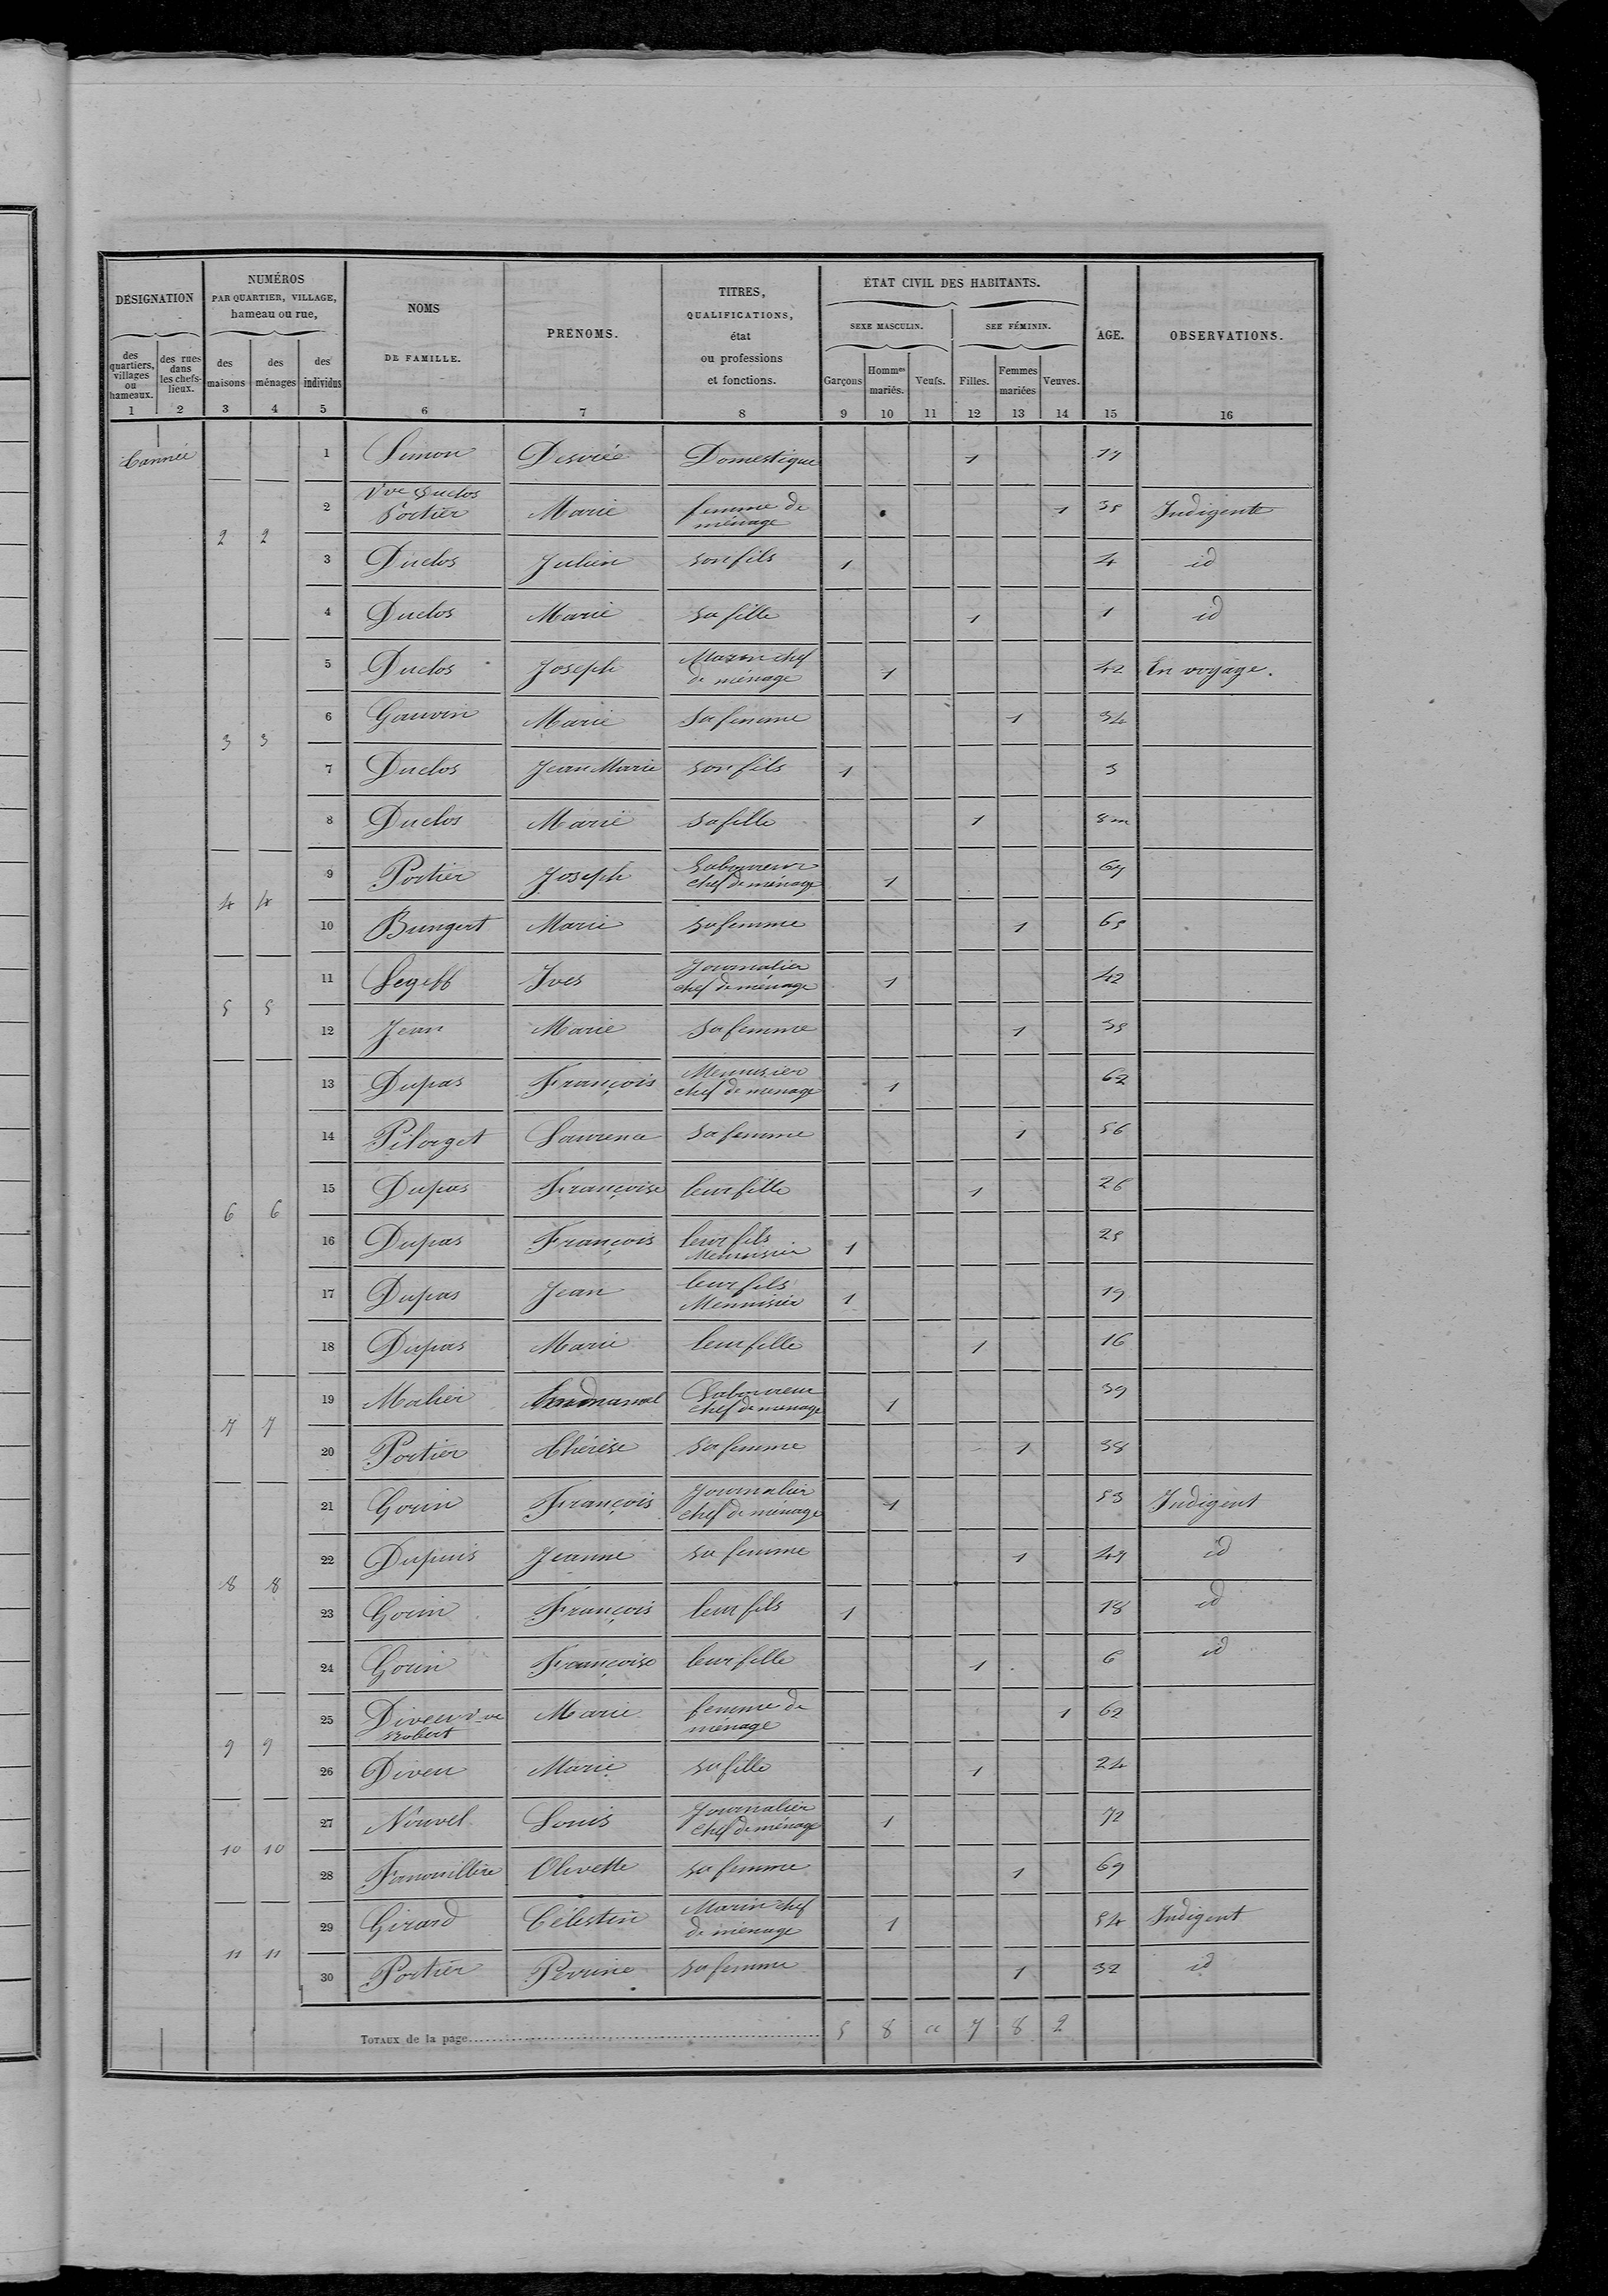 DÉSIGNATION
NUMÉROS
PAR QUARTIER, VILLAGE,
hameau ou rue,
NOMS
DE FAMILLE.
PRENOMS.
TITRES,
QUALIFICATIONS,
état
ou professions
et fonctions.
ÉTAT CIVIL DES HABITANTS.
SEXE MASCULIN.
SEE FÉMININ.
AGE.
OBSERVATIONS.
des quartiers, villages ou hameaux.
des rues dans les chefs-lieux.
des maisons
des ménages
des individus
Garçons
Hommes mariés.
Veufs.
Filles.
Femmes mariées
Veuves.
1 2 3 4 5 6 7 8 9 10 11 12 13 14 15 16
1 Simon Desirée Domestique 1 17
2 2 2 Vve Duclos Portier Marie femme de ménage 1 35 Indigente
3 Duclos Julien son fils 1 4 id
4 Duclos Marie sa fille 1 1 id
3 3 5 Duclos Joseph chef de ménage 1 42 En voyage.
6 Gauvin Marie sa femme 1 34
7 Duclos Jean Marie son fils 1 3
8 Duclos Marie sa fille 1 8 m
4 4 9 Portier Joseph Laboureur chef de ménage 1 67
10 Bungert Marie sa femme 1 65
5 5 11 Legeff Yves Journalier chef de ménage 1 42
12 Jean Marie sa femme 1 35
6 6 13 Dupas François Menusier chef de menage 1 62
14 Pilorget Laurence sa femme 1 56
15 Dupas Françoise leur fille 1 26
16 Dupas François leur fils Menuisier 1 25
17 Dupas Jean leur fils Menuisier 1 19
18 Dupas Marie leur fille 1 16
7 7 19 Malier Laboureur chef de menage 1 39
20 Portier Thérèse sa femme 1 38
8 8 21 Gorin François Journalier chef de ménage 1 53 Indigent
22 Dupuis Jeanne sa femme 1 47 id
23 Gorin François leur fils 1 18 id
24 Gorin Françoise leur fille 1 6 id
9 9 25 Diveu Vve Robert Marie femme de ménage 1 62
26 Diveu Marie sa fille 1 24
10 10 27 Nouvel Louis Journalier chef de ménage 1 72
28 Olivette sa femme 1 69
11 11 29 Girard Célestin Marin chef de ménage 1 54 Indigent
30 Portier Perrine sa femme 1 32 id
TOTAUX de la page 5 8 " 7 8 2